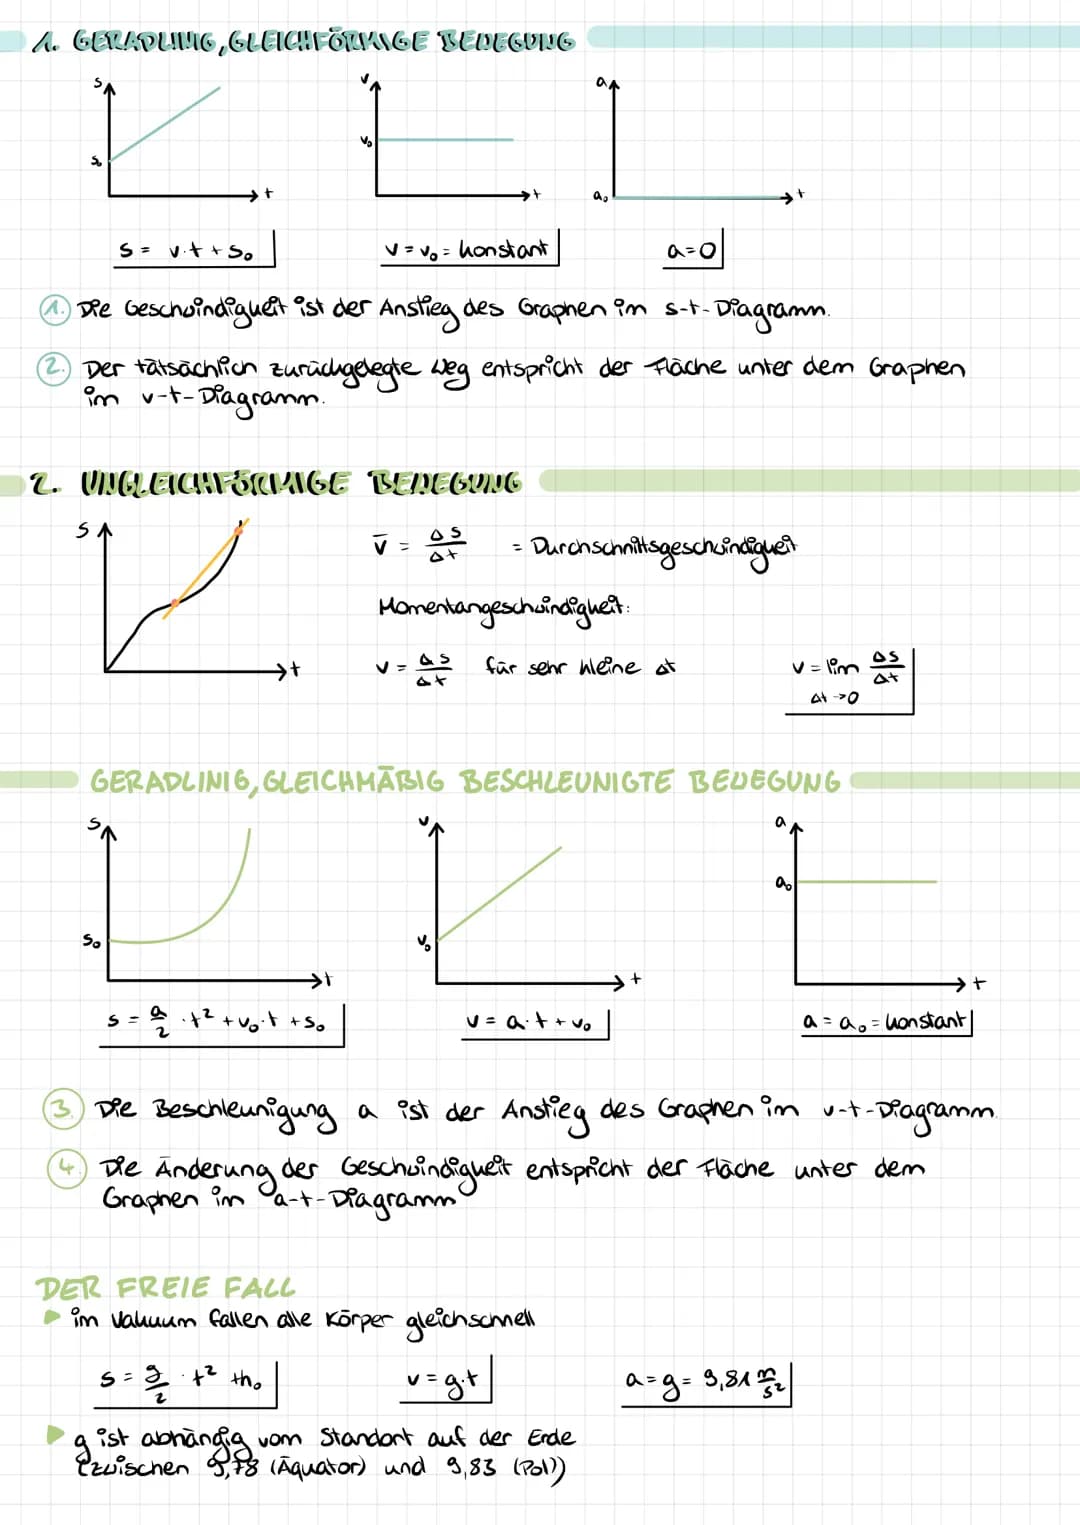 1. GERADLINIG, GLEICHFÖRMIGE BEWEGUNG
s
s₀
t
v
v₀
t
a
a₀
t
s = v·t + s₀
v = v₀ = konstant
a=0
1. Die Geschwindigkeit ist der Anstieg des Graphen im s-t-Diagramm.
2. Der tatsächlich zurückgelegte Weg entspricht der Fläche unter dem Graphen
im v-t-Diagramm.
2. UNGLEICHFÖRMIGE BEWEGUNG
s
t
v̄ = Δs/Δt = Durchschnittsgeschwindigkeit
Momentangeschwindigkeit:
v = Δs/Δt für sehr kleine Δt
v = lim Δs/Δt
Δt->0
GERADLINIG, GLEICHMÄßIG BESCHLEUNIGTE BEWEGUNG
s
s₀
t
v
v₀
t
a
a₀
t
s = a/2 · t² + v₀·t + s₀
v = a·t + v₀
a = a₀ = konstant
3. Die Beschleunigung a ist der Anstieg des Graphen im v-t-Diagramm.
4. Die Änderung der Geschwindigkeit entspricht der Fläche unter dem
Graphen im a-t-Diagramm
DER FREIE FALL
im Vakuum fallen alle Körper gleichschnell
s = g/2 · t² + h₀
v = g·t
a = g = 9,81 m/s²
g ist abhängig vom Standort auf der Erde
(zwischen 9,78 (Äquator) und 9,83 (Pol))